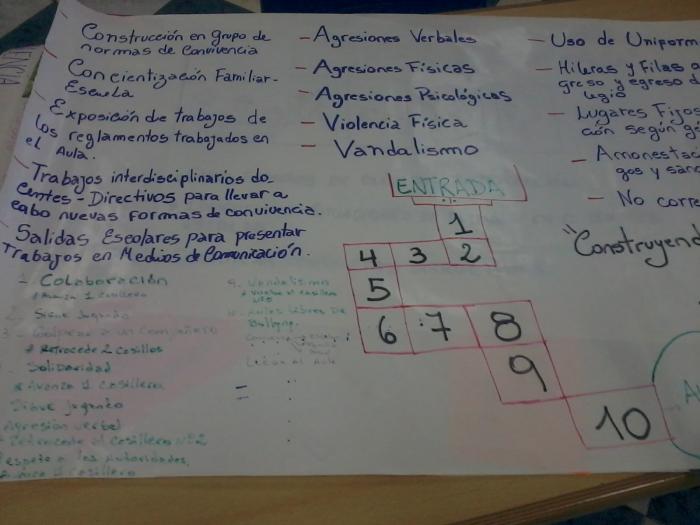 - Construcción en grupo de
normas de Convivencia
- Concientización Familiar-
Escuela
- Exposición de trabajos de
los reglamentos trabajados en
el Aula.
- Trabajos interdisciplinarios do
centes - Directivos para llevar a
cabo nuevas formas de convivencia.
- Salidas Escolares para presentar
Trabajos en Medios de Comunicación.
- Agresiones Verbales
- Agresiones Físicas
- Agresiones Psicológicas
- Violencia Física
- Vandalismo
- Uso de Uniform
- Hileras y Filas
greso y egreso d
legio
- Lugares Fijos
ción según
- Amonestac
gos y sanc
- No corre
"Construyend
ENTRADA
1
4 3 2
5
6 7 8
9
10
- Colaboración
* Avanza 1 casillero
2 - Sigue Jugando
3 - Golpear a un compañero
* Retrocede 2 casillos
Solidaridad
* Avanza 1 casillero
Sigue jugando
Agresión verbal
Retrocede al casillero Nº2
espeto a las Autoridades.
casillero
9. Vandalismo
* Vuelve al casillero
Aules libres De
Bullying.